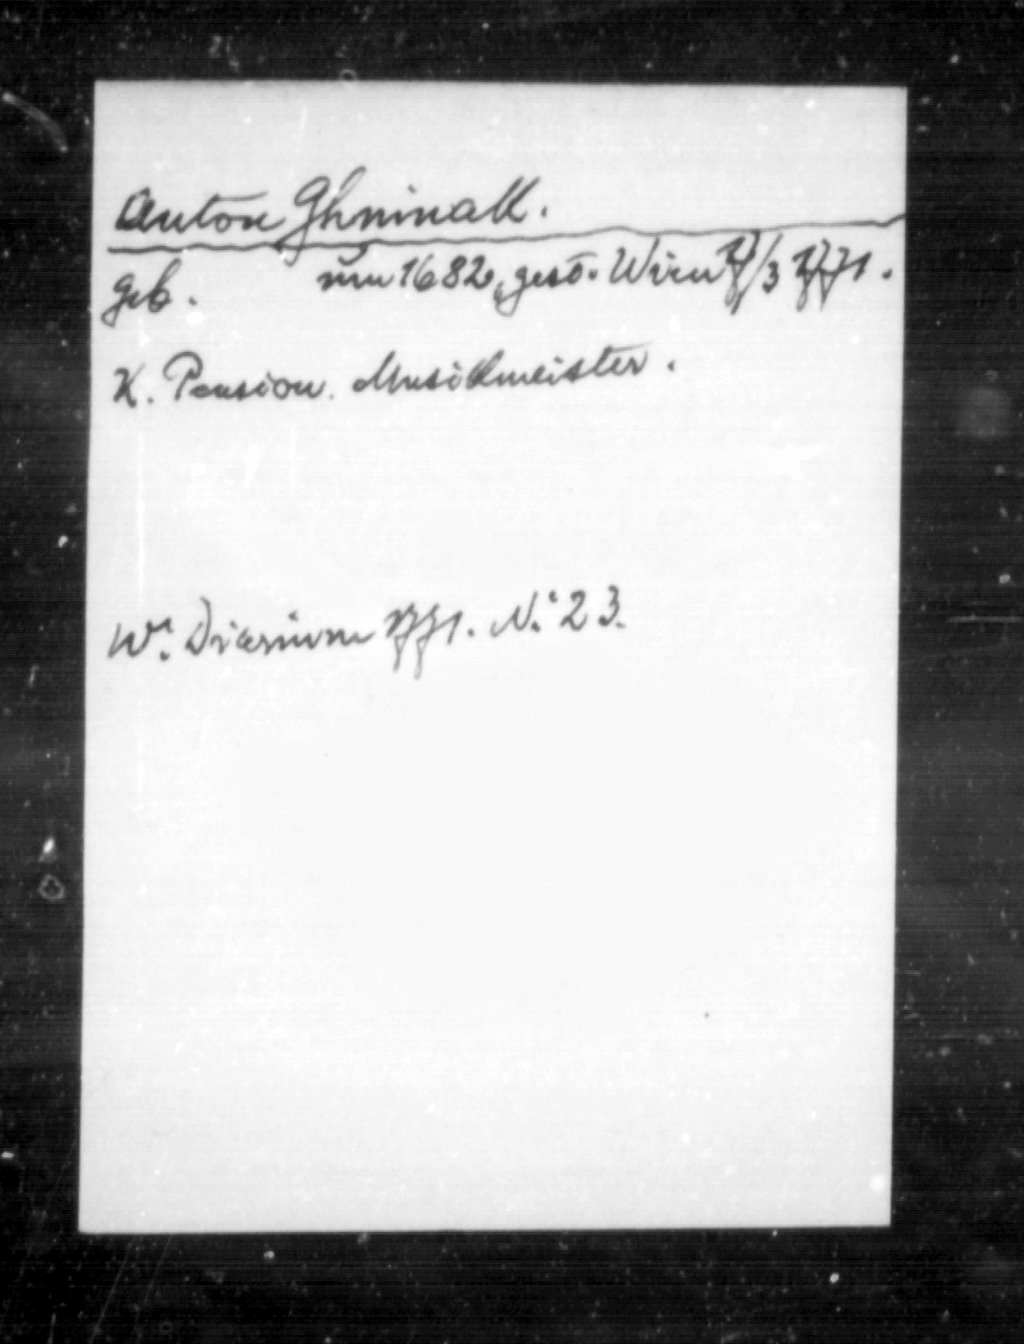 Anton Ghninall.
geb. um 1682, gest. Wien 17/3 1771.
K. Pension. Musikmeister.
Wr. Diarium 1771. Nº 23.